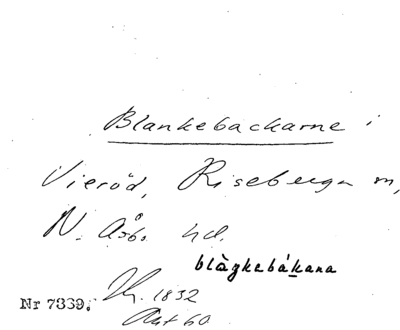 Blankebackarne i
Vieröd, Riseberga m,
N. Åsbo hd.
blàgkebákana
Nr 7889. 1832
Akt 60